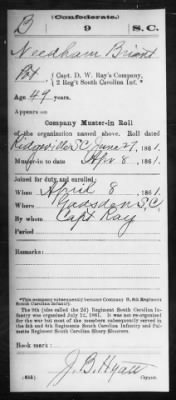 (Confederate.)
B 9 S.C.
Needham Briant
Pvt { Capt. D. W. Ray's Company,
2 Reg't South Carolina Inf.*
Age 49 years.
Appears on
Company Muster-in Roll
of the organization named above. Roll dated
Ridgeville S.C. June 27, 1861.
Muster-in to date Apr 8, 1861.
Joined for duty and enrolled:
When April 8, 1861.
Where Gadsden S.C.
By whom Capt Ray
Period
Remarks:
*This company subsequently became Company B, 9th Regiment
South Carolina Infantry.
The 9th (also called the 2d) Regiment South Carolina Infan-
try was organized July 12, 1861. It was not re-organized
for the war but most of the members subsequently served in
the 5th and 6th Regiments South Carolina Infantry and Pal-
metto Regiment South Carolina Sharp Shooters.
Book mark:
J. B. Hyatt
Copyist.